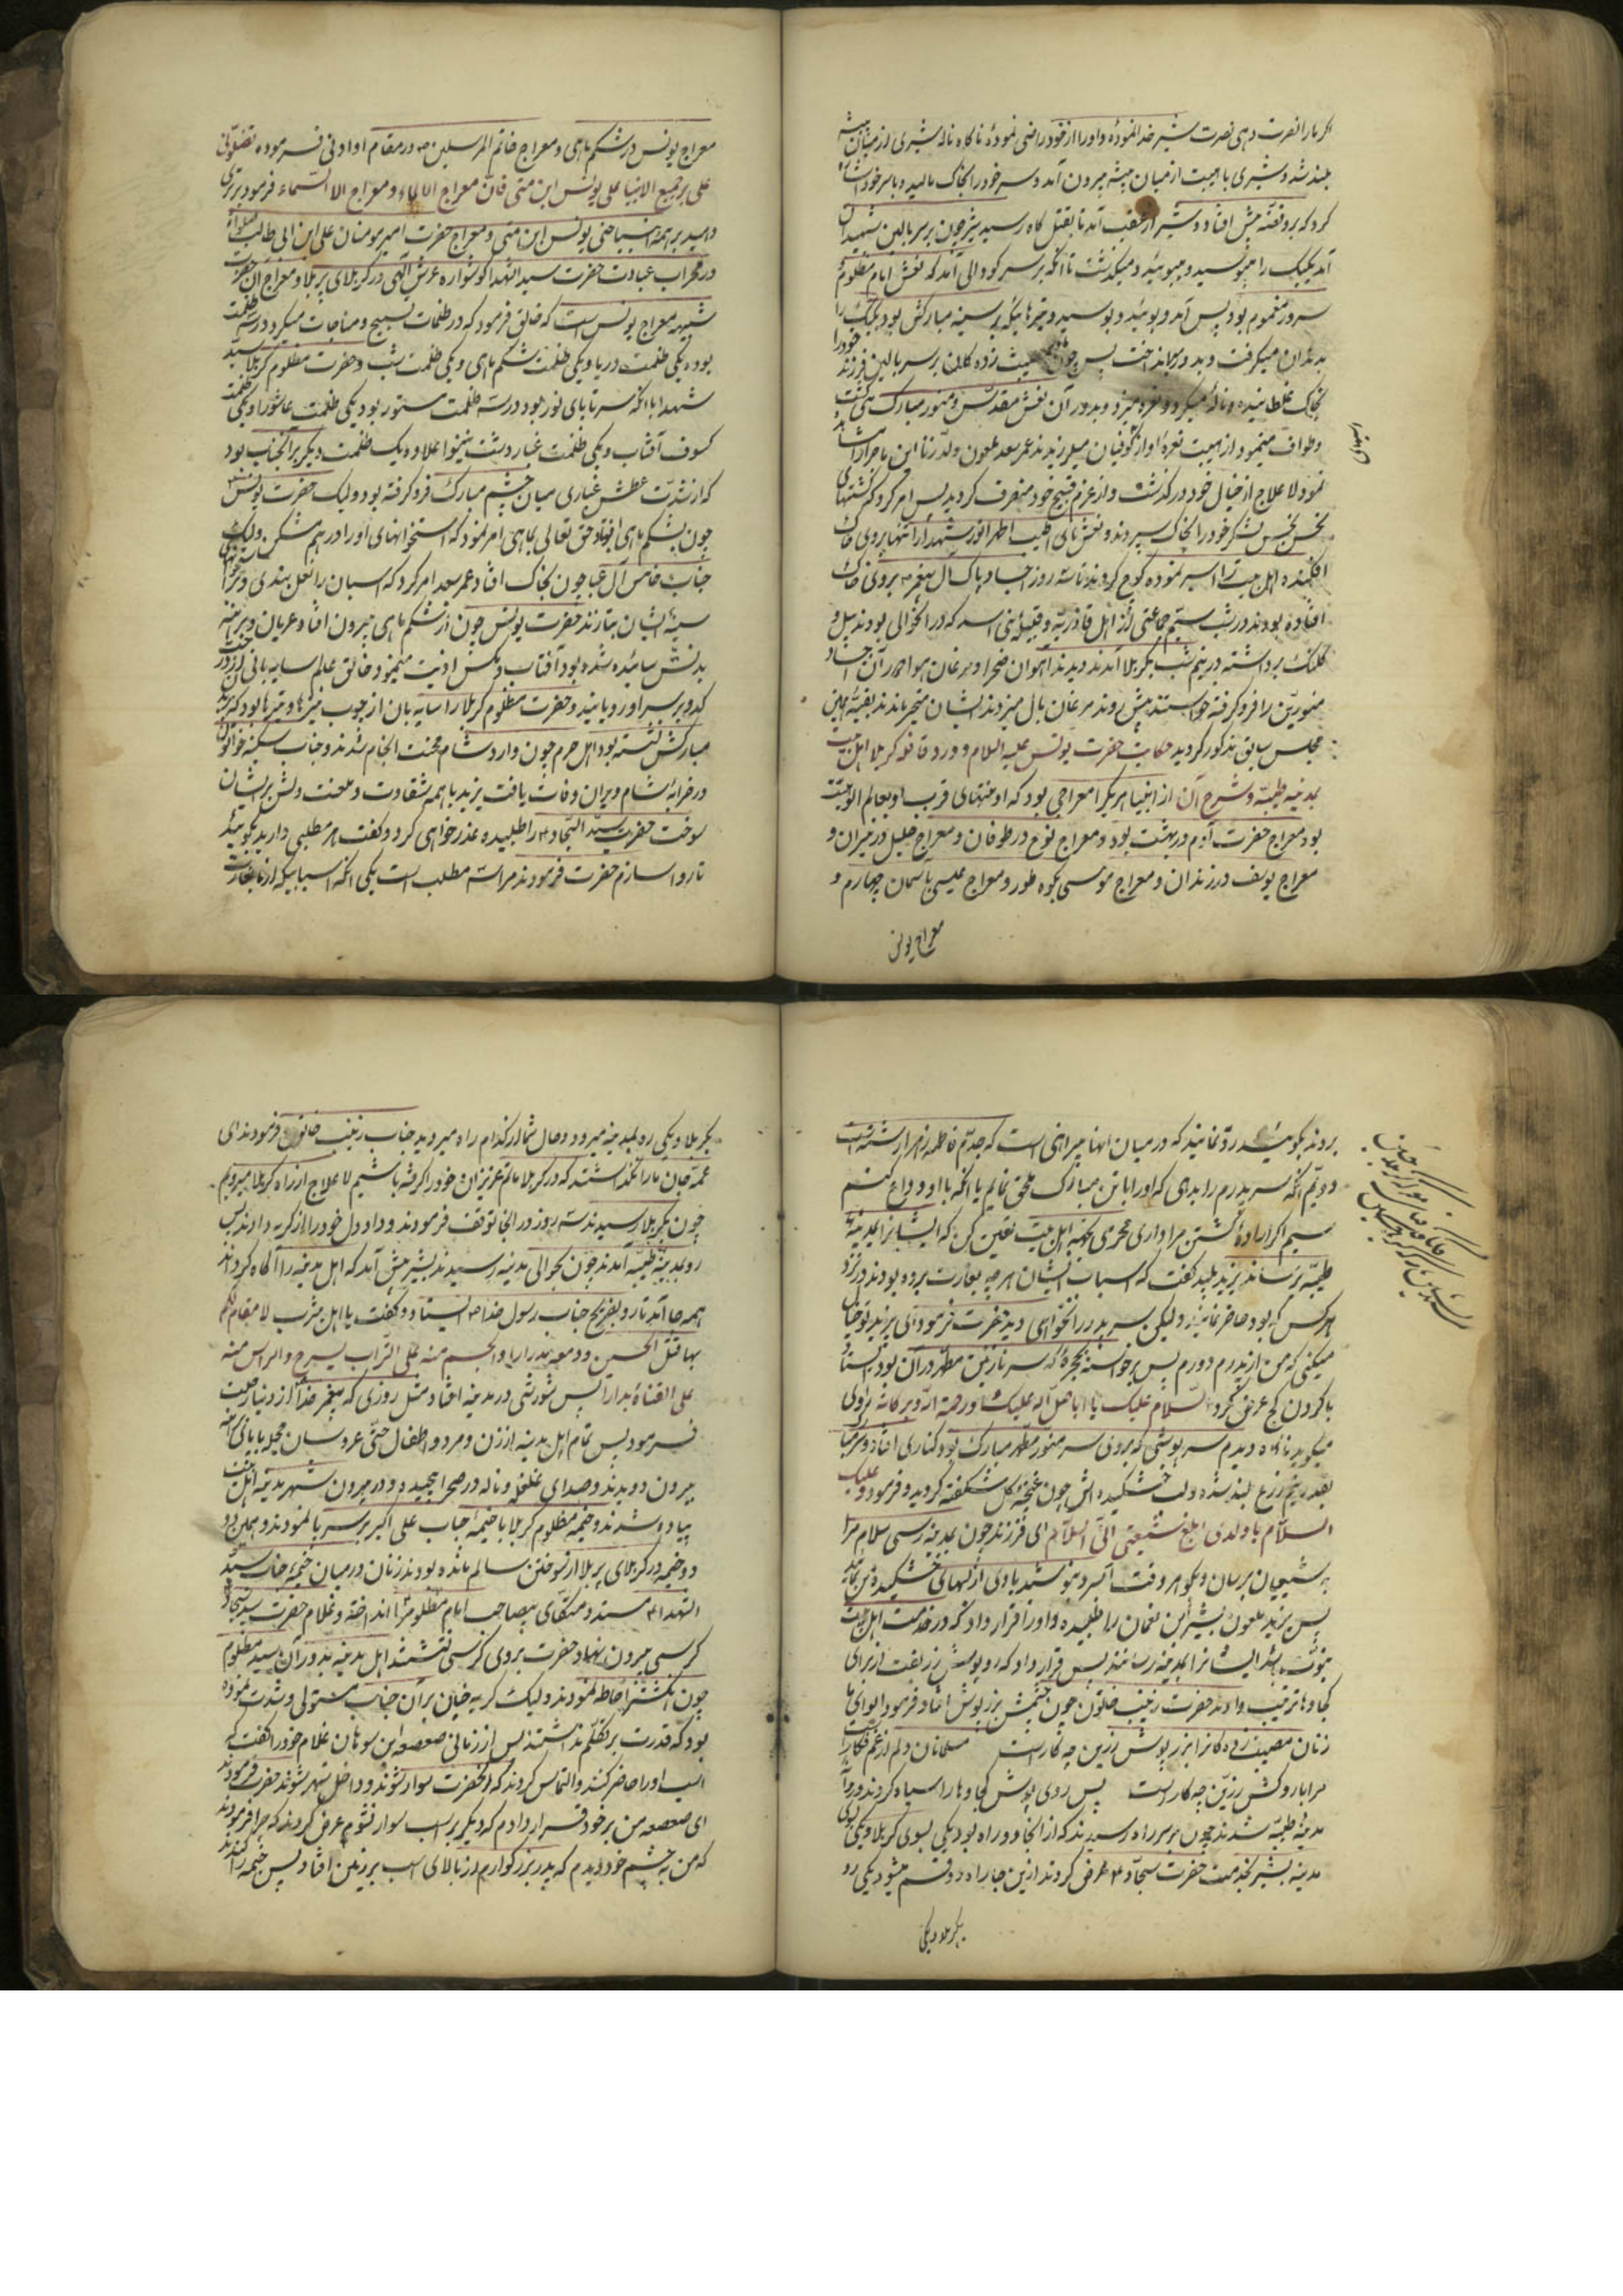 اگر ما را نصرت دهی نصرت شیر خدا نموده و او را از خود راضی نموده ناگاه ناله شیری از میان بیشه
بلند شد و شیری با هیبت از میان بیشه بیرون آمد و سر خود را بخاک مالید و با سر خود اشاره
کرد که برو فضه پیش افتاد و شیر از عقب آمد تا بقتل گاه رسید شیر چون بر سر بالین شهیدان
آمد یکیک را میبوسید و میبوئید و میگذشت تا آنکه بر سر گودالی آمد که نعش امام مظلوم و
سرور مغموم بود پس آمد و بوئید و بوسید و تیرهائیکه بر سینه مبارکش بود یکیک را
بدندان میگرفت و بدور میانداخت پس چون مصیبت زده گان بر سر بالین فرزند خود را
بخاک غلطانیده و ناله میکرد و نعره میزد و بدور آن نعش مقدس و منور مبارک می گشت
و طواف مینمود از هیبت نعره او از کوفیان میلرزیدند عمر سعد ملعون ولد زنا این ماجرا را مشاهده
نمود لا علاج از خیال خود در گذشت و از عزم قبیح خود منصرف گردید پس امر کرد کشتهای
نحس نجس لشگر خود را بخاک سپردند و نعش های اطیب اطهر انور شهدا را تنها بروی خاک
افکنده اهل بیت را اسیر نموده کوچ کردند تا سه روز اجساد پاک آل پیغمبر ص بروی خاک
افتاده بودند در شب سیم جماعتی از اهل قاذریه و قبیله بنی اسد که در آنحوالی بودند بیل و
کلنگ برداشته در نیم شب بکربلا آمدند دیدند آهوان صحرا و مرغان هوا دور آن اجساد
منورین را فرو گرفته خواستند پیش روند مرغان بال میزدند ایشان متحیر ماندند بقیه همین
مجلس سابق مذکور گردید حکایت حضرت یونس علیه السلام و ورود قافله کربلا اهل بیت
بمدینه طیبه و شرح آن از انبیا هر یکرا معراجی بود که او منتهای قرب او بعالم الوهیت
بود معراج حضرت آدم در بهشت بود و معراج نوح در طوفان و معراج خلیل در نیران و
معراج یوسف در زندان و معراج موسی بکوه طور و معراج عیسی باسمان چهارم و
معراج یونس
معراج یونس در شکم ماهی و معراج خاتم المرسلین ص در مقام او ادنی فرموده تفضلونی
علی جمیع الانبیا علی یونس ابن متی فان معراج الی الماء و معراج الا السماء فرمود برتری
دهید بر همه انبیا حتی یونس ابن متی و معراج حضرت امیر مومنان علی ابن ابی طالب صلواة
در محراب عبادت حضرت سید الشهدا گوشواره عرش الهی در کربلای پر بلا و معراج آن حضرت
شبیه معراج یونس است که خالق فرمود که در ظلمات تسبیح و مناجات میکرد در سه ظلمت
بوده یکی ظلمت دریا و یکی ظلمت شکم ماهی و یکی ظلمت شب و حضرت مظلوم کربلا سید
شهدا با آنکه سر تا پای نور بود در سه ظلمت مستور بود یکی ظلمت عاشورا و یکی ظلمت
کسوف آفتاب و یکی ظلمت غبار دشت نینوا علاوه یک ظلمت دیگر بر آنجناب بود
که از شدت عطش غباری میان چشم مبارک فرو گرفته بود و لیک حضرت یونس
چون بشکم ماهی افتاد حق تعالی بماهی امر نمود که استخوانهای او را در هم مشکن و لیک
جناب خامس آل عبا چون بخاک افتاد عمر سعد امر کرد که اسبان را نعل بندی
سینه ایشان بتازند حضرت یونس چون از شکم ماهی بیرون افتاد عریان و برهنه
بدنش سائیده شده بود آفتاب و مگس اذیت مینمود خالق عالم سایه بانی از درخت
کدو بر سر او رویانید و حضرت مظلوم کربلا را سایه بان از چوب نیزها و تیرها بود که بر بدن
مبارکش نشسته بود اهل حرم چون وارد شام محنت انجام شدند و جناب سکینه خواتون
در خرابه شام ویران وفات یافت یزید با همه شقاوت و ملعنت دلش بریشان
سوخت حضرت سید السجاد ع را طلبیده عذر خواهی کرد و گفت هر مطلبی دارید بگوئید
تا روا سازم حضرت فرمودند مرا سه مطلب است یکی آنکه اسبابیکه از ما بغارت
بردند بگوئید رد نمایند که در میان آنها پیراهنی است که جده ام فاطمه زهرا رشته است
دویم آنکه سر پدرم را بدهی که او را با تن مبارک ملحق نمایم یا آنکه با او وداع کنم
سیم اگر اراده کشتن مرا داری محرمی بجهة اهل بیت تعیین کن که ایشانرا بمدینه
طیبه برساند یزید پلید گفت که اسباب ایشان هر چه بغارت برده بودند در نزد
هر کس که بود حاضر نمایند و لیکن سر پدر را نخواهی دید حضرت فرمود ای یزید تو خیال
میکنی که من از پدرم دورم پس برخواسته بحجره که سر نازنین مطهر در آن بود ایستاد
با گردن کج عرض کرد السلام علیک یا اباه صلی الله علیک و رحمة الله و برکاته راوی
میگوید ناگاه دیدم سرپوشی که بروی سر منور مطهر مبارک بود کناری افتاد و سر مبارک
بقدر نیم زرع بلند شده و لب خشکیده اش چون غنچه گل شکفته گردید و فرمود و علیک
السلام یا ولدی ابلغ شیعتی الی السلام ای فرزند چون بمدینه رسی سلام مرا
به شیعیان برسان و بگو هر وقت آب سرد بنوشید یادی از لبهای خشکیده من نمائید
پس یزید ملعون بشیر ابن نعمان را طلبیده و او را قرار داد که در خدمت اهل بیت
نبوت باشد ایشانرا بمدینه رسانند پس قرار داد که روپوش زر بفت از برای
کجاوها ترتیب دادند حضرت زینب خاتون چون چشمش بزر پوش افتاد فرمود ای وای ما
زنان مصیبت زده گانرا بزر پوش زرین چه کار است مسلمانان دلم از غم فکار است
مرا با روکش زرین چه کار است پس روی پوش کجاوها را سیاه کردند و روانه
مدینه طیبه شدند چون بر سر راه رسیدند که از آنجا دو راه بود یکی بسوی کربلا و یکی بسوی
مدینه بشیر بخدمت حضرت سجاد ع عرض کردند از این جا راه دو قسم میشود یکی رو
بکربلا و یکی
بکربلا و یکی رو بمدینه میرود و حال شما از کدام راه میروید جناب زینب خاتون فرمودند ای
عمه جان ما را نگذاشتند که در کربلا ماتم عزیزان خود را گرفته باشیم لا علاج از راه کربلا میرویم
چون بکربلا رسیدند سه روز در آنجا توقف فرمودند و داد دل خود را از گریه دادند پس
رو بمدینه طیبه آمدند چون بحوالی مدینه رسیدند بشیر پیش آمد که اهل مدینه را آگاه گرداند
همه جا آمد تا رو بضریح جناب رسول خدا ص ایستاد و گفت یا اهل یثرب لا مقام لکم
بها قتل الحسین و دمعه مدرارا و الجسم منه علی التراب یسرح و الراس منه
علی القناة یدارا پس شورشی در مدینه افتاد مثل روزی که پیغمبر خدا از دنیا رحلت
فرمود پس تمام اهل مدینه از زن و مرد و اطفال حتی عروسان حجله با پای برهنه
بیرون دویدند و صدای غلغله و ناله در صحرا پیچید و در بیرون شهر مدینه اهل بیت
پیاده شدند و خیمه مظلوم کربلا با خیمه جناب علی اکبر بر سر پا نمودند و همین دو
دو خیمه در کربلای پر بلا از سوختن سالم مانده بودند زنان در میان خیمه جناب سید
الشهدا ع مسند و متکای بیصاحب امام مظلوم را انداخته و غلام حضرت سید سجاد
کرسی بیرون بنهاد حضرت بروی کرسی نشستند اهل مدینه بدور آن سید مظلوم
چون انگشتر احاطه نمودند و لیک گریه چنان بر آن جناب مستولی و شدت نموده
بود که قدرت بر تکلم نداشتند پس از زمانی صعصعه ابن سوهان غلام خود را گفت که
اسب او را حاضر کنند و التماس کردند که آنحضرت سوار شوند و داخل شهر شوند حضرت فرمودند
ای صعصعه من بر خود قرار دادم که دیگر بر اسب سوار نشوم عرض کردند که چرا فرمودند
که من به چشم خود دیدم که پدر بزرگوارم از بالای اسب بر زمین افتاد پس خیمه را کندند